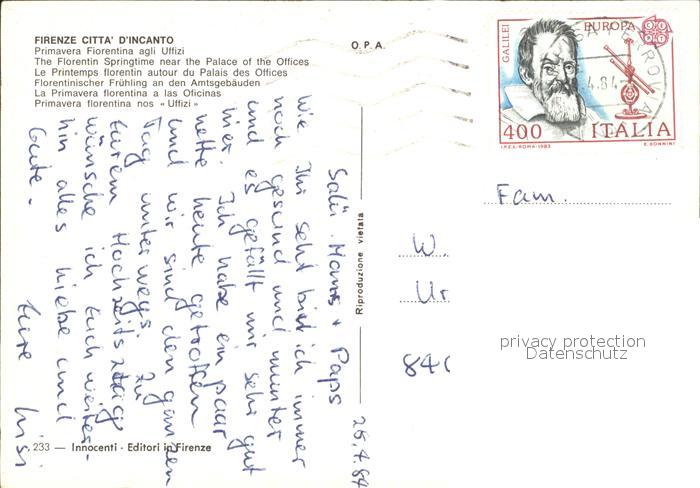 FIRENZE CITTA' D'INCANTO
Primavera Fiorentina agli Uffizi
The Florentin Springtime near the Palace of the Offices
Le Printemps florentin autour du Palais des Offices
Florentinischer Frühling an den Amtsgebäuden
La Primavera florentina a las Oficinas
Primavera florentina nos « Uffizi »
O.P.A.
GALILEI
EUROPA
CEPT
4.84
FERROVIA
400 ITALIA
I.P.Z.S.-ROMA-1983
E. DONNINI
26.4.84
Salü Mams + Paps
Wie Ihr seht bin ich immer
noch gesund und munter
und es gefällt mir sehr gut
hier. Ich habe ein paar
nette Leute getroffen
und wir sind den ganzen
Tag unterwegs. Zu
Eurem Hochzeitstag
wünsche ich Euch weiter-
hin alles Liebe und
Gute.
Eure
Riproduzione vietata
Fam.
W.
Ur
840
privacy protection
Datenschutz
233 — Innocenti - Editori in Firenze